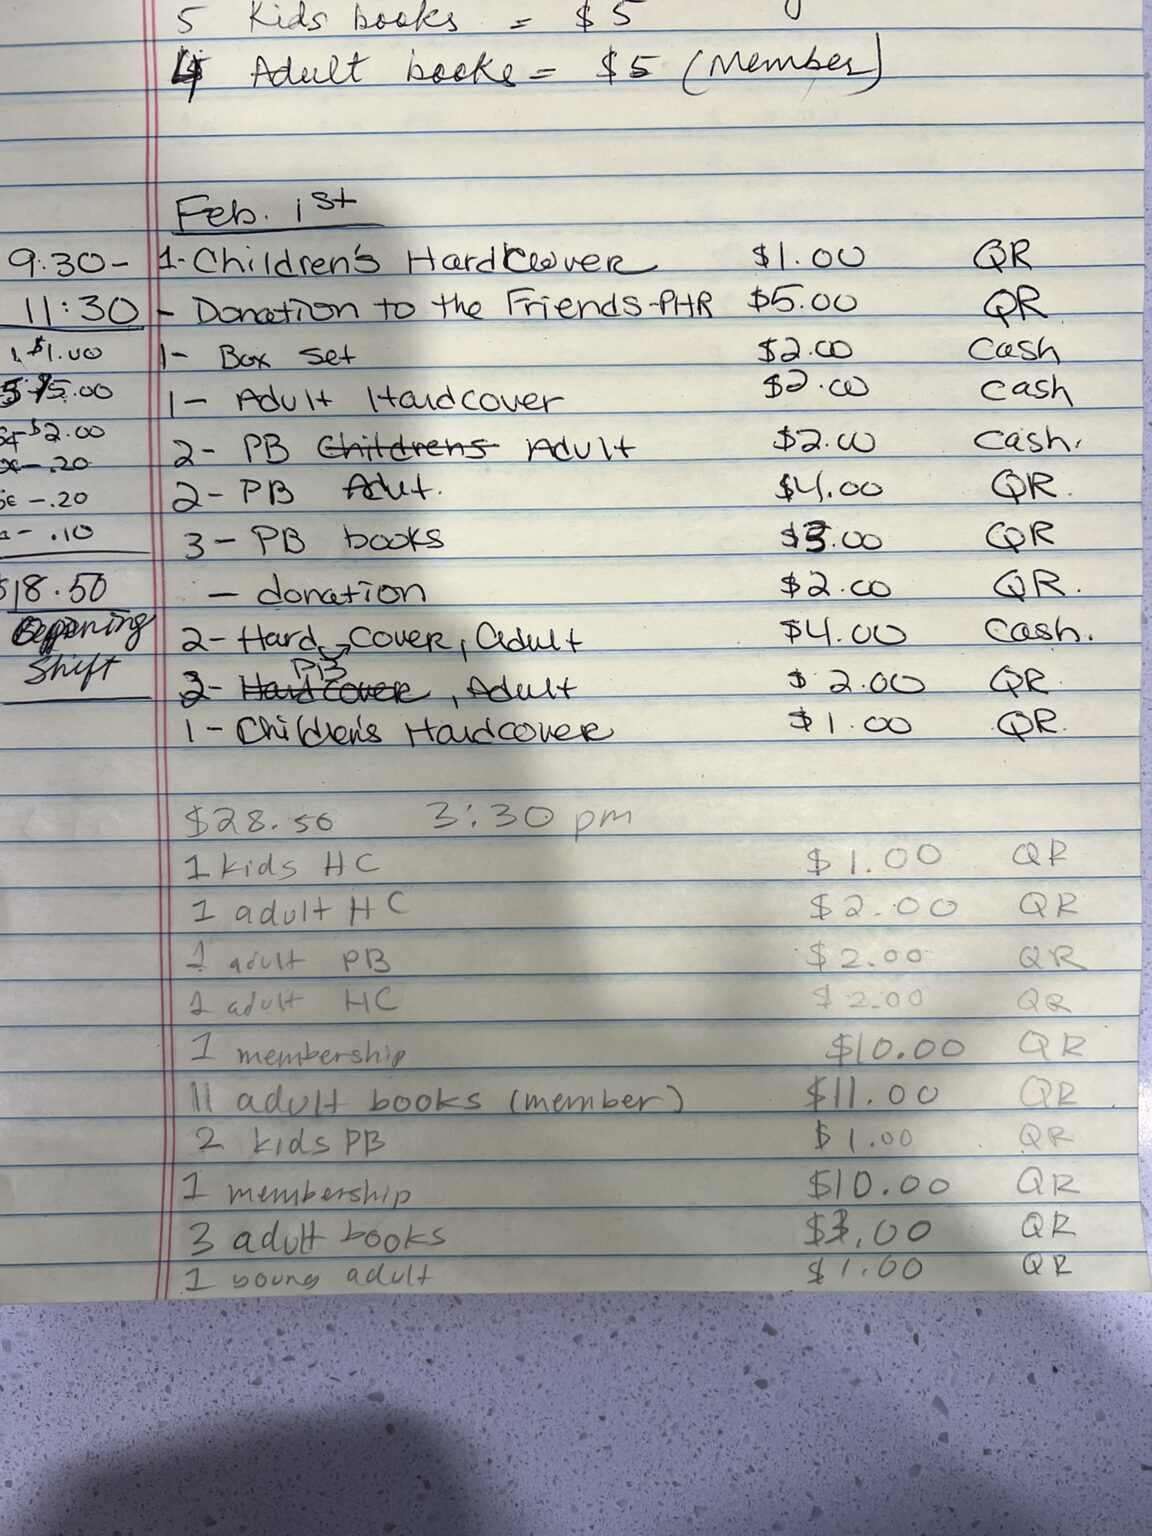 5 Kids books = $5
4 Adult books = $5 (Member)
Feb. 1st
9:30- 1- Children's Hardcover $1.00 QR
11:30 - Donation to the Friends-PHR $5.00 QR
$1.00 1- Box set $2.00 Cash
5.00 1- Adult Hardcover $2.00 Cash
$2.00 2- PB Childrens Adult $2.00 Cash.
- .20 2- PB Adut. $4.00 QR.
- .20 3- PB books $3.00 QR
- .10 - donation $2.00 QR.
$18.50 2- Hard Cover, adult $4.00 Cash.
Oppening PB
Shift 2- Hard cover, Adult $2.00 QR
1- Children's Hardcover $1.00 QR.
$28.50 3:30 pm
1 kids HC $1.00 QR
1 adult HC $2.00 QR
1 adult PB $2.00 QR
1 adult HC $2.00 QR
1 membership $10.00 QR
11 adult books (member) $11.00 QR
2 kids PB $1.00 QR
1 membership $10.00 QR
3 adult books $3.00 QR
1 young adult $1.00 QR